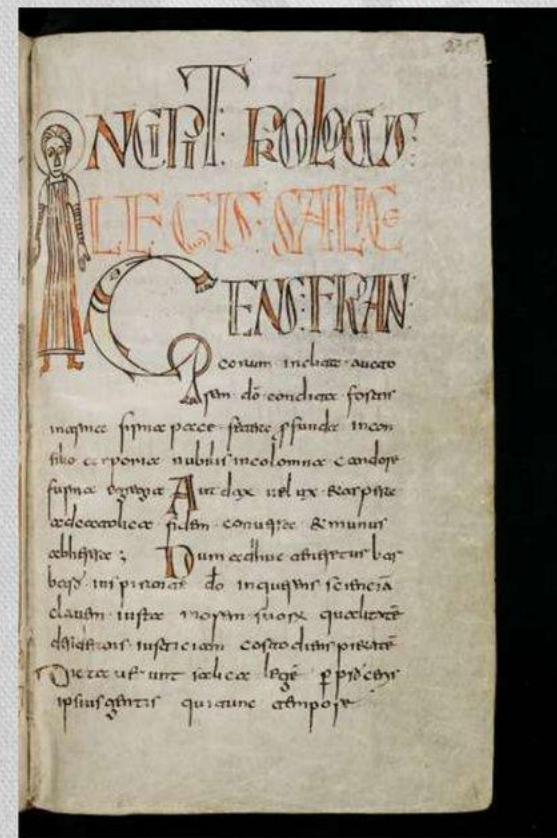 235
INCIPIT PROLOGUS
LEGIS SALICE
GENS FRAN
corum inclita aucto
dō condita fortis
in arma firma pace fetere profunda in con
silio corporia nubilis incolomna candore
forma egregia Audax uelux & aspera
ad catolica fidem conuersa & munus
ab heresa; Dum adhuc teneretur bar
bara inspirante dō inquerens sciencia
clauem iusta morem suorum qualitatē
desiderans iusticiam costodiens pietatē
Dictauerunt salica legē
ipsius gentis qui tunc tempore